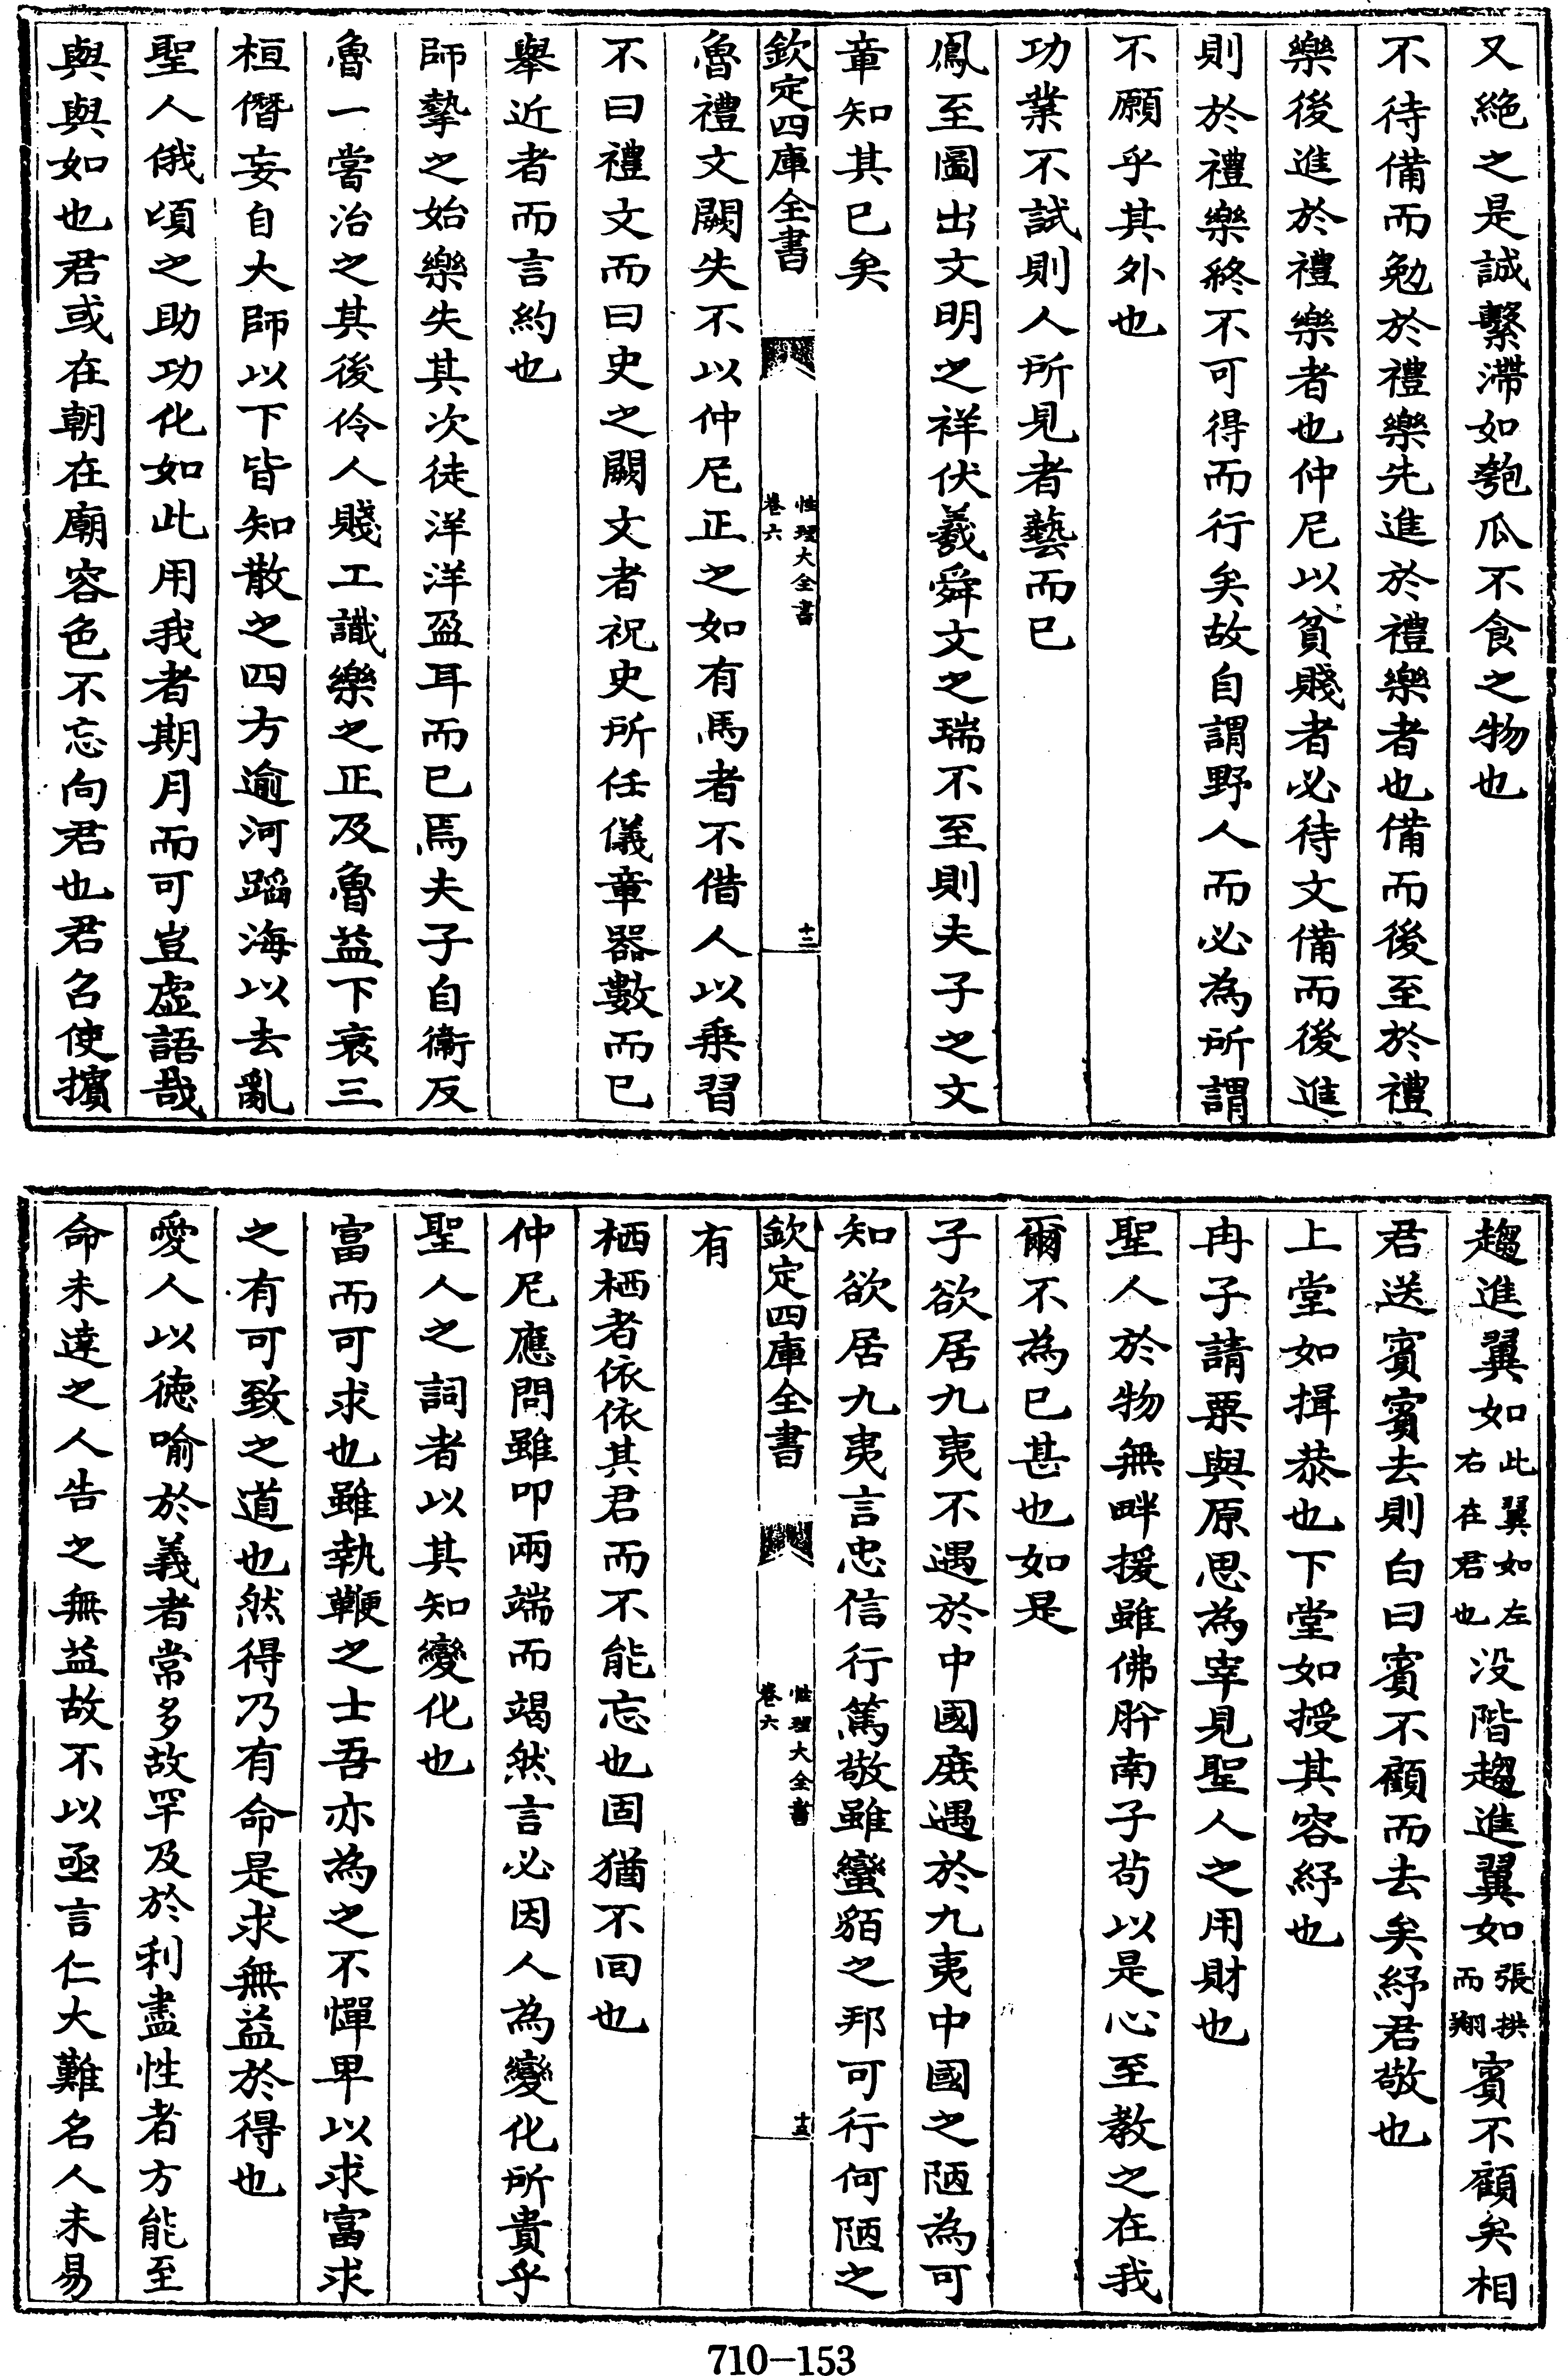 又絶之是誠繫滯如匏瓜不食之物也
不待備而勉於禮樂先進於禮樂者也備而後至於禮
樂後進於禮樂者也仲尼以貧賤者必待文備而後進
則於禮樂終不可得而行矣故自謂野人而必為所謂
不願乎其外也
功業不試則人所見者藝而已
鳳至圖出文明之祥伏羲舜文之瑞不至則夫子之文
章知其已矣
欽定四庫全書
性理大全書
卷六
十二
魯禮文闕失不以仲尼正之如有馬者不借人以乗習
不曰禮文而曰史之闕文者祝史所任儀章器數而已
舉近者而言約也
師摰之始樂失其次徒洋洋盈耳而已焉夫子自衛反
魯一嘗治之其後伶人賤工識樂之正及魯益下衰三
桓僭妄自大師以下皆知散之四方逾河蹈海以去亂
聖人俄頃之助功化如此用我者期月而可豈虛語哉
與與如也君或在朝在廟容色不忘向君也君召使擯
趨進翼如
此翼如左
右在君也
没階趨進翼如
張拱
而翔
賓不顧矣相
君送賓賓去則白曰賓不顧而去矣紓君敬也
上堂如揖恭也下堂如授其容紓也
冉子請粟與原思為宰見聖人之用財也
聖人於物無畔援雖佛肸南子苟以是心至教之在我
爾不為已甚也如是
子欲居九夷不遇於中國庶遇於九夷中國之陋為可
知欲居九夷言忠信行篤敬雖蠻貊之邦可行何陋之
欽定四庫全書
性理大全書
卷六
十五
有
栖栖者依依其君而不能忘也固猶不回也
仲尼應問雖叩兩端而竭然言必因人為變化所貴乎
聖人之詞者以其知變化也
富而可求也雖執鞭之士吾亦為之不憚卑以求富求
之有可致之道也然得乃有命是求無益於得也
愛人以徳喻於義者常多故罕及於利盡性者方能至
命未達之人告之無益故不以亟言仁大難名人未易
710-153